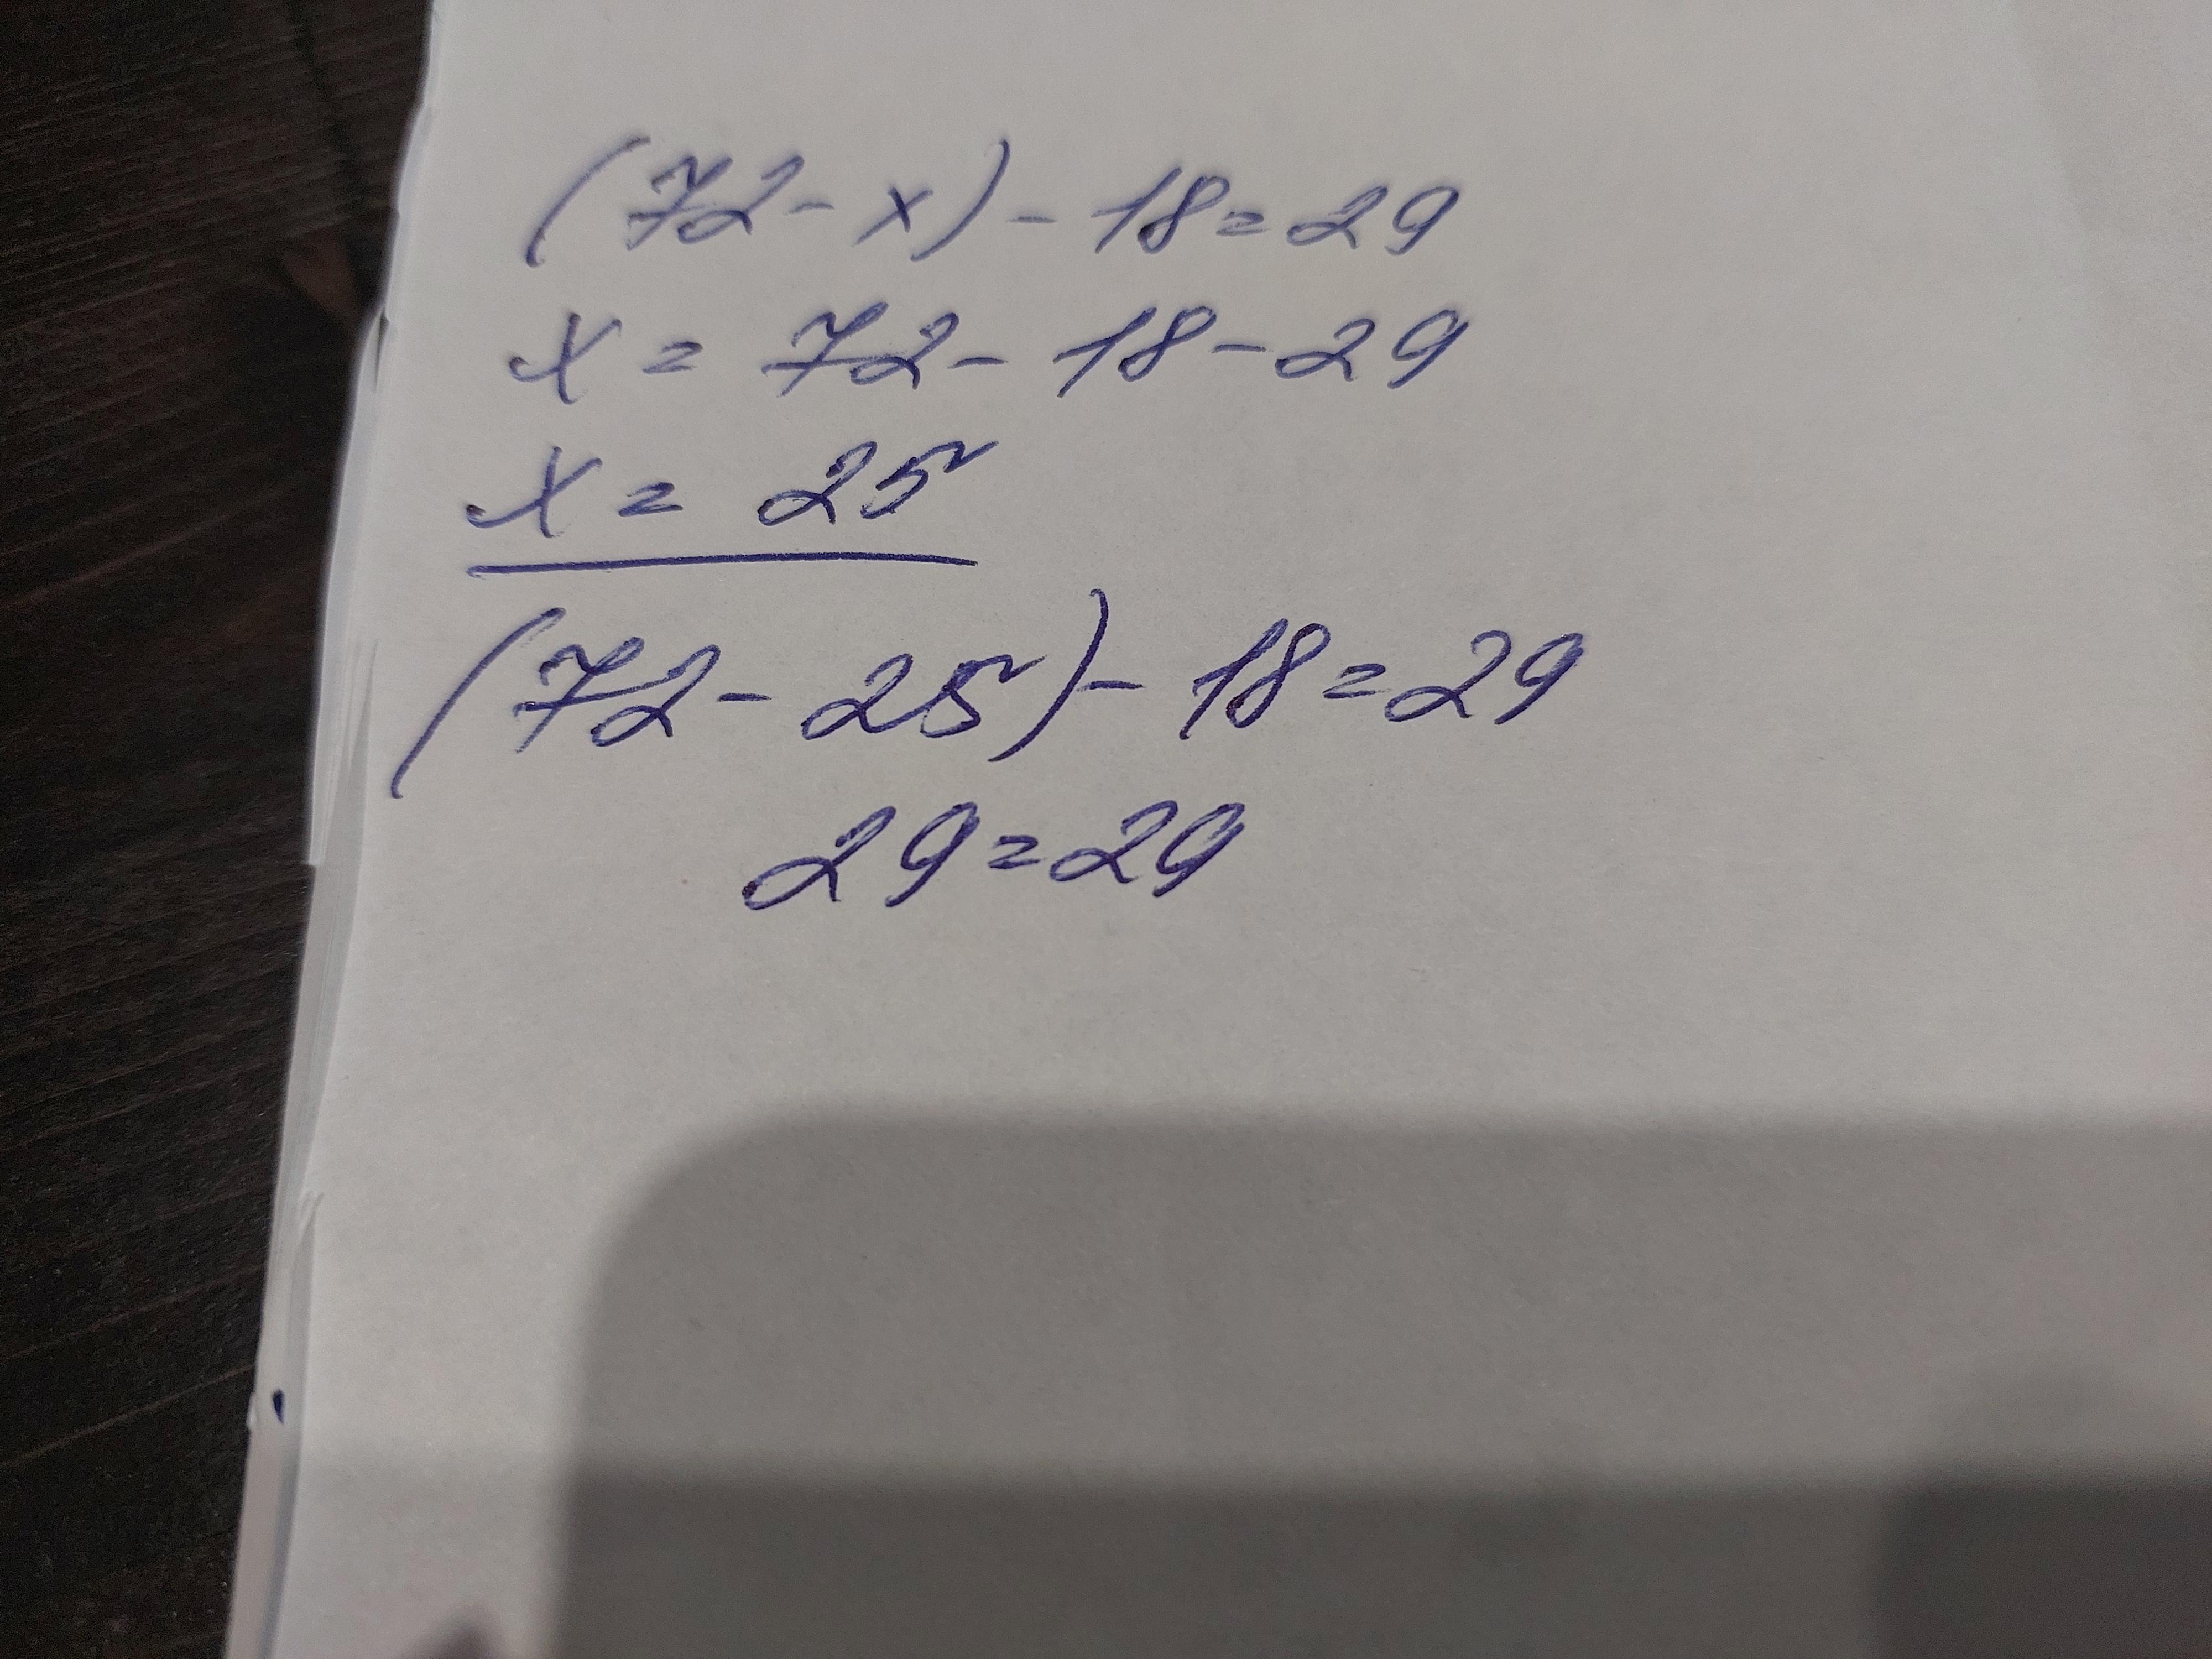 (72 - x) - 18 = 29
x = 72 - 18 - 29
x = 25
(72 - 25) - 18 = 29
29 = 29